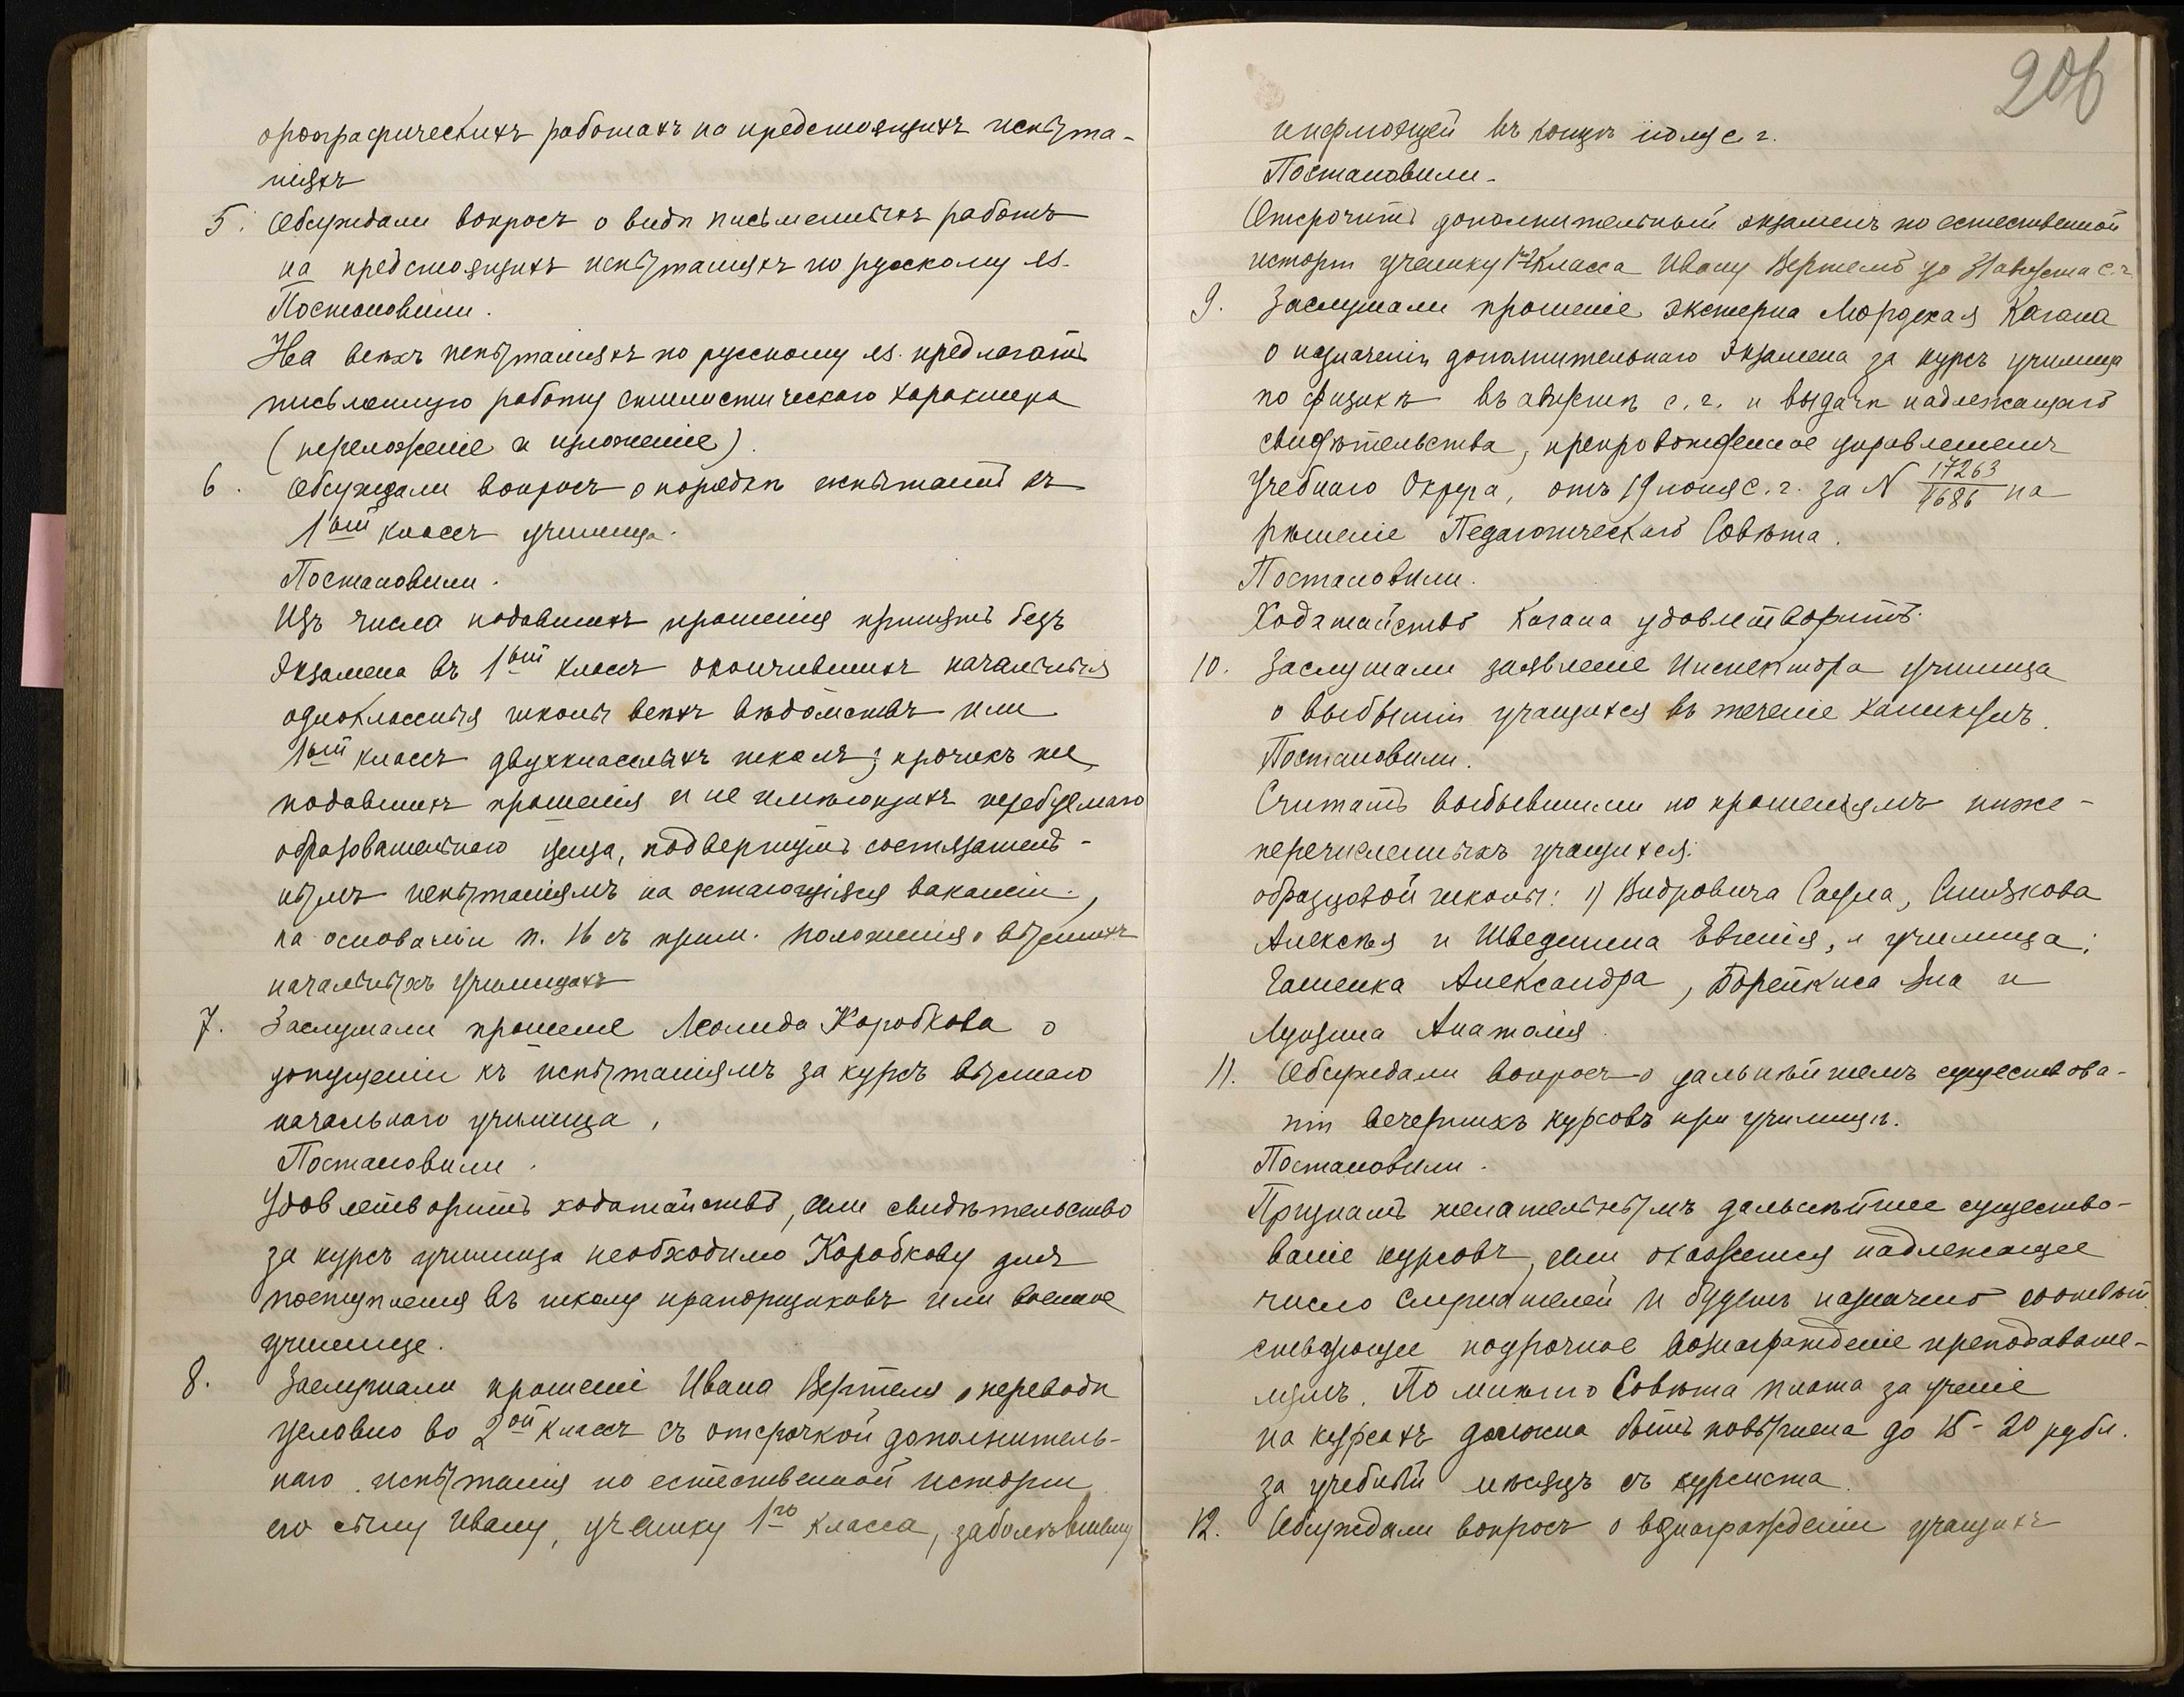 орѳографическихъ работахъ на предстоящихъ испыта-
ніяхъ
5. Обсуждали вопросъ о видѣ письменныхъ работъ
на предстоящихъ испытаніяхъ по русскому яз.
Постановили.
На всѣхъ испытаніяхъ по русскому яз. предлагать
письменную работу стилистическаго характера
(переложеніе и изложеніе).
6. Обсуждали вопросъ о порядкѣ испытаній въ
1ый классъ училища.
Постановили.
Изъ числа подавшихъ прошенія принять безъ
экзамена въ 1ый классъ окончившихъ начальныя
одноклассныя школы всѣхъ вѣдомствъ или
1ый классъ двухклассныхъ школъ; прочихъ же,
подавшихъ прошенія и не имѣющихъ требуемаго
образовательнаго ценза, подвергнуть состязатель-
нымъ испытаніямъ на остающіяся вакансіи,
на основаніи п. 16 съ прим. Положенія о высшихъ
начальныхъ училищахъ
7. Заслушали прошеніе Леонида Коробкова о
допущеніи къ испытаніямъ за курсъ высшаго
начальнаго училища,
Постановили.
Удовлетворить ходатайство, если свидѣтельство
за курсъ училища необходимо Коробкову для
поступленія въ школу прапорщиковъ или военное
училище.
8. Заслушали прошеніе Ивана Вертеля о переводѣ
условно во 2ой классъ съ отсрочкой дополнитель-
наго испытанія по естественной исторіи
его сыну Ивану, ученику 1го класса, заболѣвшему
206
въ концѣ іюля с. г.
Постановили.
Отсрочить дополнительный экзаменъ по естественной
исторіи ученику 1го класса Ивану Вертелю до 31 августа с. г.
9. Заслушали прошеніе экстерна Мордехая Кагана
о назначеніи дополнительнаго экзамена за курсъ училища
по физикѣ въ августѣ с. г. и выдачѣ надлежащаго
свидѣтельства, препровожденное управленіемъ
Учебнаго Округа, отъ 19 іюля с. г. за N 17263/4686 на
рѣшеніе Педагогическаго Совѣта.
Постановили.
Ходатайство Кагана удовлетворить.
10. Заслушали заявленіе Инспектора училища
о выбытіи учащихся въ теченіе каникулъ.
Постановили.
Считать выбывшими по прошеніямъ ниже-
перечисленныхъ учащихся:
образцовой школы: 1) Видровича Саула, Слизкова
Алексѣя и Шведшина Евгенія, и училища:
Гашенка Александра, Борейкиса Яна и
Лузина Анатолія.
11. Обсуждали вопросъ о дальнѣйшемъ существова-
ніи вечернихъ курсовъ при училищѣ.
Постановили.
Признать желательнымъ дальнѣйшее существо-
ваніе курсовъ, если окажется надлежащее
число слушателей и будетъ назначено соотвѣт-
ствующее поурочное вознагражденіе преподавате-
лямъ. По мнѣнію Совѣта плата за ученіе
на курсахъ должна быть повышена до 15-20 рубл.
за учебный мѣсяцъ съ курсиста.
12. Обсуждали вопросъ о вознагражденіи учащихъ